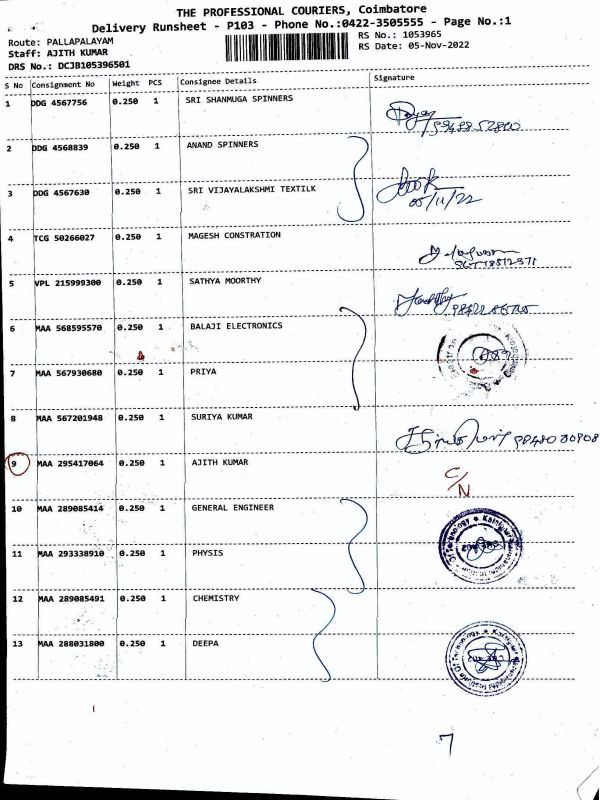 THE PROFESSIONAL COURIERS, Coimbatore
Delivery Runsheet - P103 - Phone No.:0422-3505555 - Page No.:1
Route: PALLAPALAYAM RS No.: 1053965
Staff: AJITH KUMAR RS Date: 05-Nov-2022
DRS No.: DCJB105396501
S No Consignment No Weight PCS Consignee Details Signature
1 DDG 4567756 0.250 1 SRI SHANMUGA SPINNERS
2 DDG 4568839 0.250 1 ANAND SPINNERS
3 DDG 4567630 0.250 1 SRI VIJAYALAKSHMI TEXTILK
05/11/22
4 TCG 50266027 0.250 1 MAGESH CONSTRATION
5 VPL 215999300 0.250 1 SATHYA MOORTHY
6 MAA 568595570 0.250 1 BALAJI ELECTRONICS
7 MAA 567930680 0.250 1 PRIYA
8 MAA 567201948 0.250 1 SURIYA KUMAR
9 MAA 295417064 0.250 1 AJITH KUMAR C/N
10 MAA 289085414 0.250 1 GENERAL ENGINEER
11 MAA 293338910 0.250 1 PHYSIS
12 MAA 289085491 0.250 1 CHEMISTRY
13 MAA 288031800 0.250 1 DEEPA
7